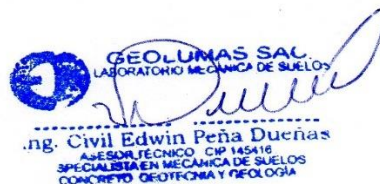 GEOLUMAS SAC.
LABORATORIO MECANICA DE SUELOS
Ing. Civil Edwin Peña Dueñas
ASESOR TÉCNICO CIP 145416
SPECIALISTA EN MECÁNICA DE SUELOS
CONCRETO GEOTECNIA Y GEOLOGÍA